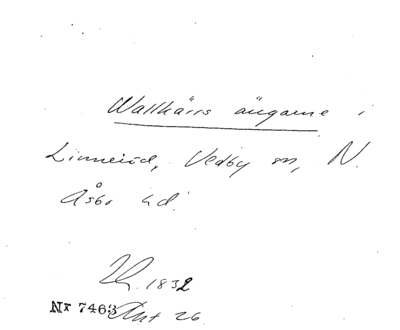 Wallkärrs ängarne i
Linneröd, Vedby sn, N.
Åsbo hd.
1832
Nr 7463 Akt 26